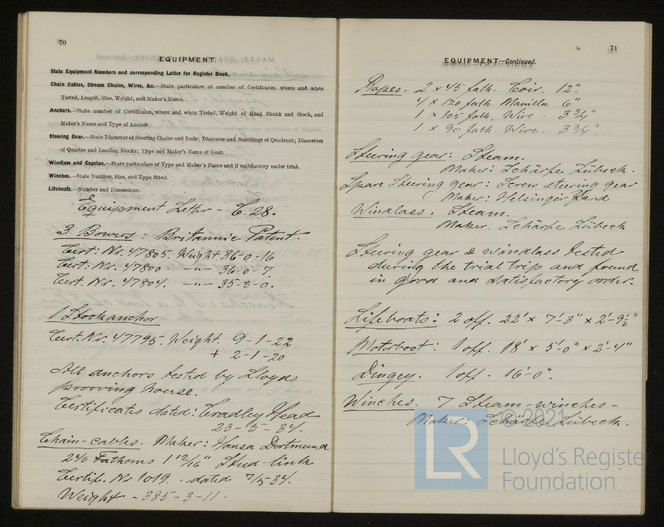 70
EQUIPMENT.
State Equipment Numbers and corresponding Letter for Register Book.
Chain Cables, Stream Chains, Wires, &c.—State particulars of number of Certificates, where and when
Tested, Length, Size, Weight, and Maker's Name.
Anchors.—State number of Certificates, where and when Tested, Weight of Head Shank and Stock, and
Maker's Name and Type of Anchor.
Steering Gear.—State Diameter of Steering Chains and Rods; Diameter and Mountings of Quadrant; Diameters
of Quarter and Leading Blocks; Type and Maker's Name of Gear.
Windlass and Capstan.—State particulars of Type and Maker's Name and if satisfactory under trial.
Winches.—State Number, Size, and Type fitted.
Lifeboats.—Number and Dimensions.
Equipment Letter - C. 28.
3 Bowers: Britannic Patent.
Cert: Nr. 47805. Weight 36-0-16
Cert: Nr. 47800 —"— 36-0-7
Cert. Nr. 47804. —"— 35-3-0.
1 Stockanchor
Cert. Nr. 47795. Weight. 9-1-22
+ 2-1-20
All anchors tested by Lloyds
prooving house.
Certificates dated: Cradley Head
23-5-34.
Chain-cables. Maker: Hansa Dortmund
240 Fathoms 1 12/16" Stud-link
Certif. No 1019. - dated 7/5-34.
Weight - 385-3-11.
71
EQUIPMENT—Continued.
Ropes. 2 x 45 fath. Coir. 12"
4 x 120 fath Manilla 6"
1 x 105 fath. Wire - 3 3/4"
1 x 90 fath. Wire. 3 3/4".
Steering gear: Steam.
Maker: Schärfe Lübeck.
Spare Steering gear: Screw steering gear
Maker: Helsingør
Windlass. Steam.
Maker. Schärfe Lübeck
Steering gear & windlass tested
during the trial trip and found
in good and satisfactory order.
Lifeboats: 2 off. 22' x 7'-3" x 2'-9½"
Motorboat: 1 off. 18' x 5'-0" x 2'-4"
Dingey. 1 off. 16'-0".
Winches. 7 Steam-winches-
Maker: Schärfe Lübeck.
© 2021
LR
Lloyd's Register
Foundation